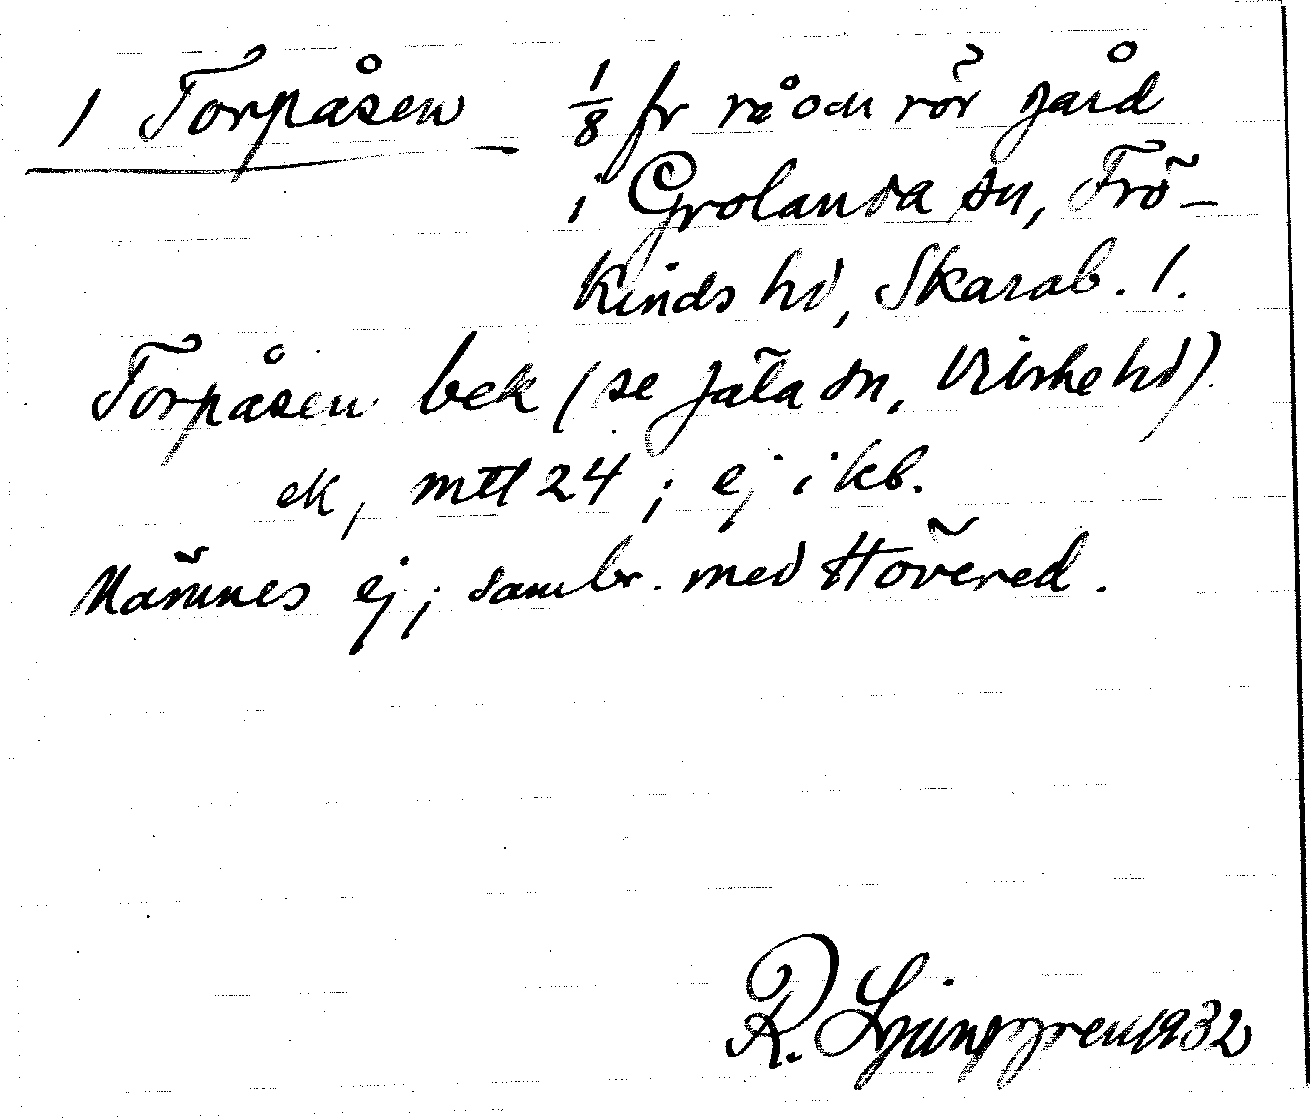 1 Torpåsen - 1/8 fr rå och rör gård
i Grolanda sn, Frö-
kinds hd, Skarab. l.
Torpåsen bek (se Jäla sn, Vilske hd)
ek, mtl 24 ; ej i kb.
Nämnes ej ; sambr. med Hövered.
R. Ljunggren 1932